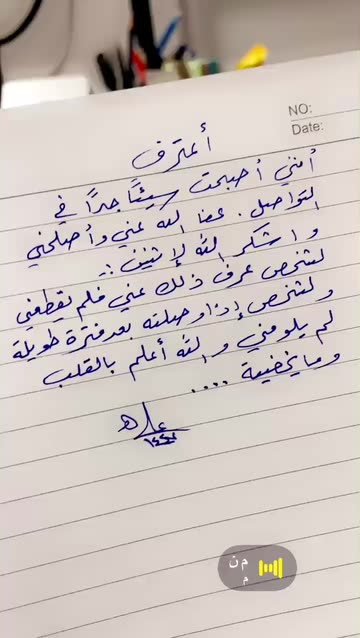 NO:
Date:
أعترف
أنني أصبحت سيئاً جداً في
التواصل . عفا الله عني وأصلحني
و اشكر الله لإثنين :-
لشخص عرف ذلك عني فلم يقطعني
ولشخص إذا وصلته بعد فترة طويلة
لم يلومني و الله أعلم بالقلب
وما يخفيه ....
م ن
م